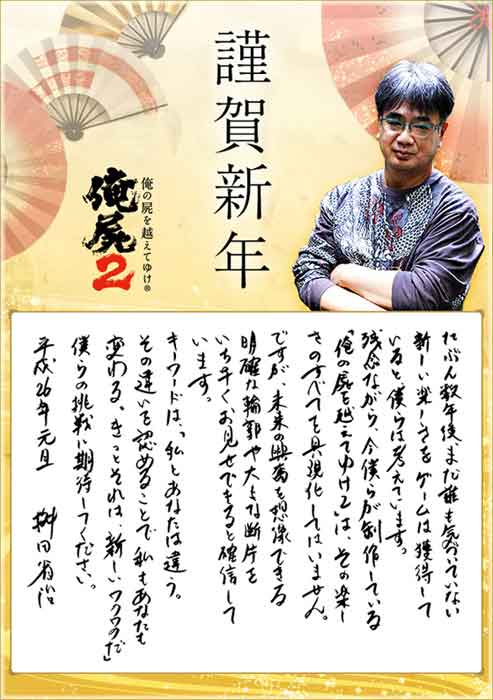 謹賀新年
俺の屍を越えてゆけ®
俺屍2
たぶん数年後、まだ誰も気がついていない
新しい楽しさを、ゲームは獲得して
いると僕らは考えています。
残念ながら、今僕らが制作している
「俺の屍を越えてゆけ2」は、その楽し
さのすべてを具現化してはいません。
ですが、未来の興奮を想像できる
明確な輪郭や大きな断片を
いち早くお見せできると確信して
います。
キーワードは、「私とあなたは違う。
その違いを認めることで私もあなたも
変わる。きっとそれは、新しいワクワクだ」
僕らの挑戦に期待してください。
平成26年元旦 桝田省治